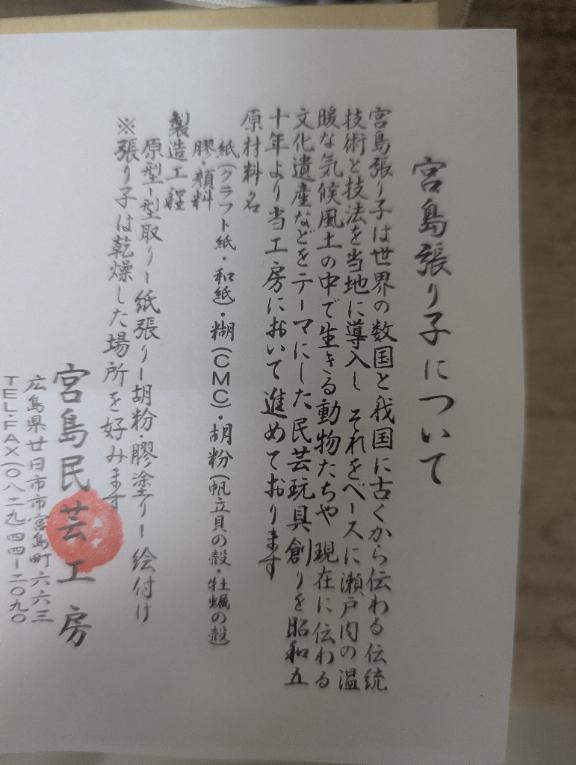 宮島張り子について
宮島張り子は世界の数国と我国に古くから伝わる伝統
技術と技法を当地に導入し それをベースに瀬戸内の温
暖な気候風土の中で生きる動物たちや 現在に伝わる
文化遺産などをテーマにした民芸玩具創りを昭和五
十年より当工房において進めております
原材料名
紙(クラフト紙・和紙)・糊(CMC)・胡粉(帆立貝の殻・牡蠣の殻)
膠・顔料
製造工程
原型ー型取りー紙張りー胡粉膠塗りー絵付け
※張り子は乾燥した場所を好みます
宮島民芸工房
広島県廿日市市宮島町六六三
TEL.FAX(〇八二九)四四ー二〇九〇